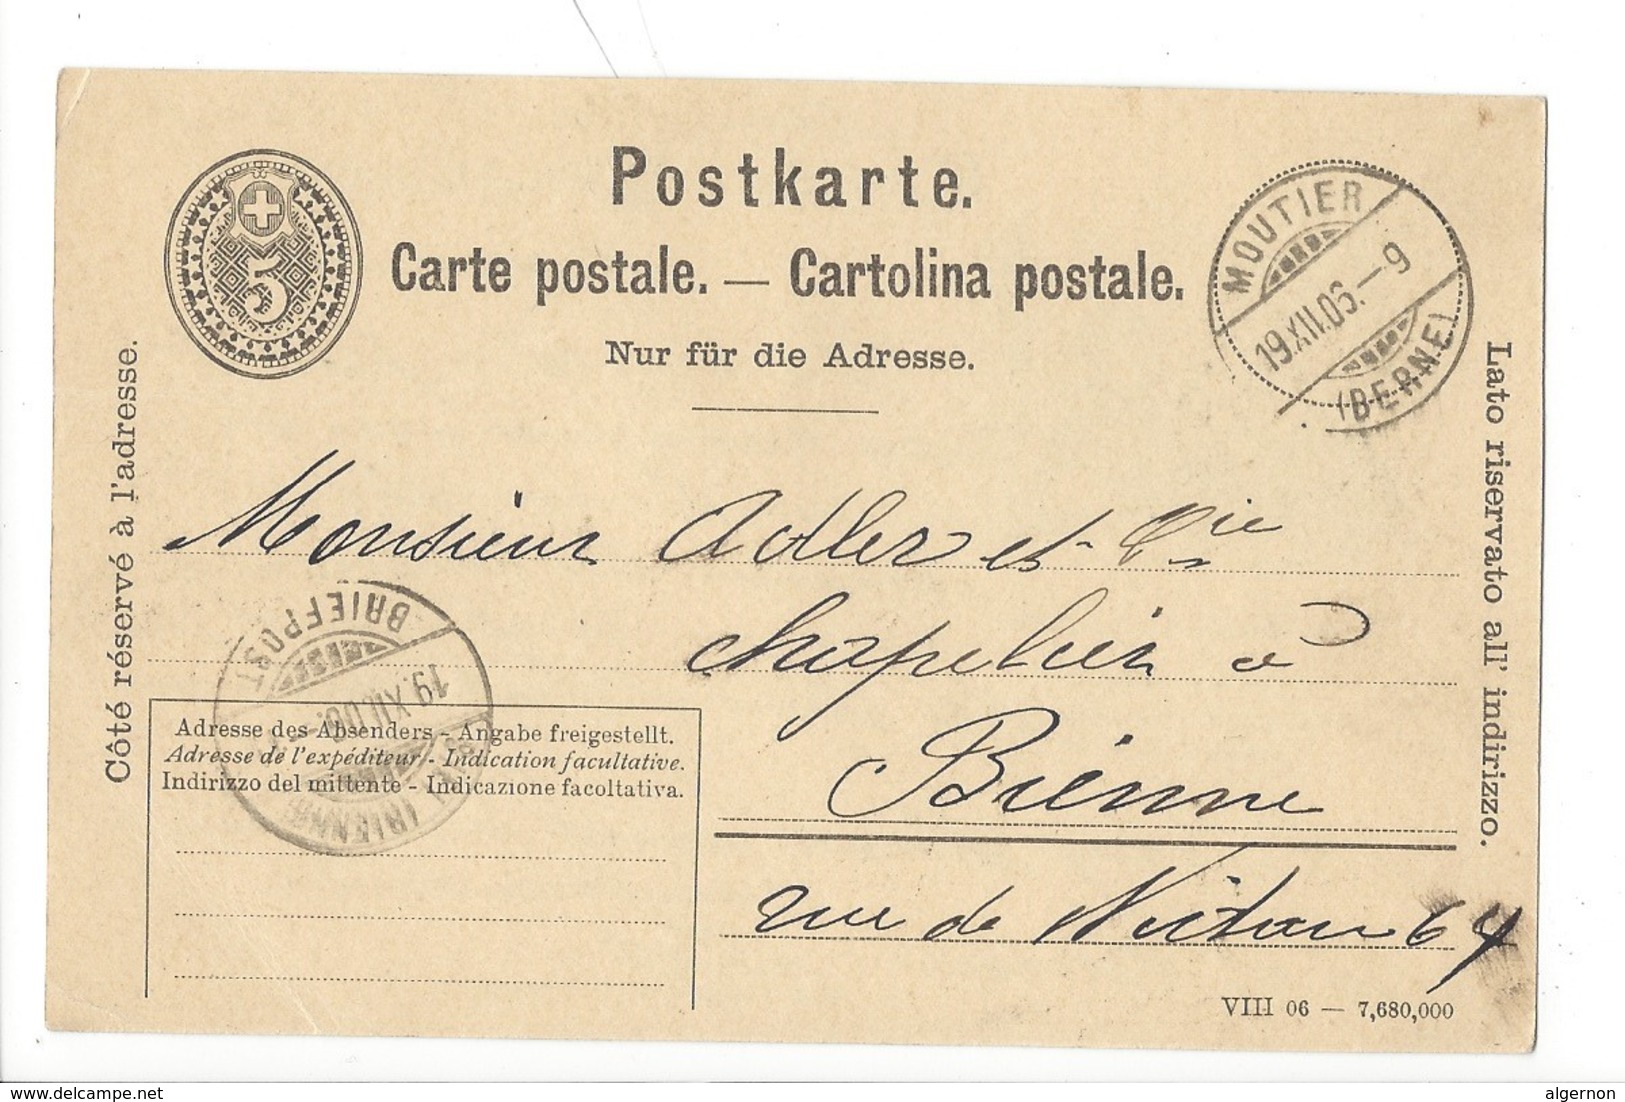 Postkarte.
Carte postale. — Cartolina postale.
Nur für die Adresse.
5
MOUTIER
19.XII.06.-9
(BERNE)
Côté réservé à l'adresse.
Lato riservato all' indirizzo.
Monsieur Adler et Cie
chapelier à
Bienne
rue de Nidau 64
BRIEFPOST
19.XII.06.
(BIENNE)
Adresse des Absenders - Angabe freigestellt.
Adresse de l'expéditeur - Indication facultative.
Indirizzo del mittente - Indicazione facoltativa.
VIII 06 — 7,680,000
www.delcampe.net
algernon